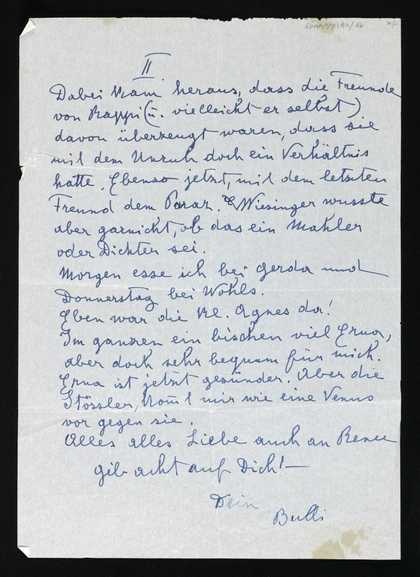 II
Dabei kam heraus, dass die Freunde
von Kappi (u. vielleicht er selbst)
davon überzeugt waren, dass sie
mit dem Unruh doch ein Verhältnis
hatte. Ebenso jetzt, mit dem letzten
Freund dem Wiesinger wusste
aber garnicht, ob das ein Mahler
oder Dichter sei.
Morgen esse ich bei Gerda und
Donnerstag bei Wohls.
Eben war die kl. Agnes da!
Im ganzen ein bischen viel Erna,
aber doch sehr bequem für mich.
Erna ist jetzt gesünder. Aber die
Stössler, kommt mir wie eine Venus
vor gegen sie.
Alles alles Liebe auch an Renee
gib acht auf Dich! —
Dein
Bulli